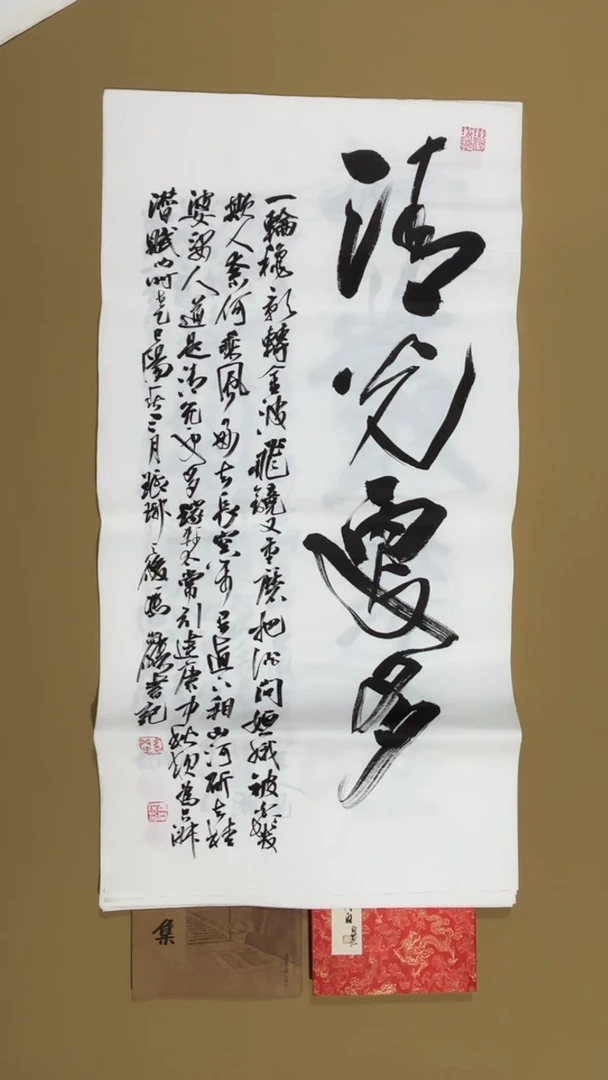 清光更多
一輪秋影轉金波飛鏡又重磨把酒問姮娥被白髮
欺人奈何乘風好去長空萬里直下看山河斫去桂
婆娑人道是清光更多太常引建康中秋為呂叔
潛賦時乙巳陽春三月書記
集